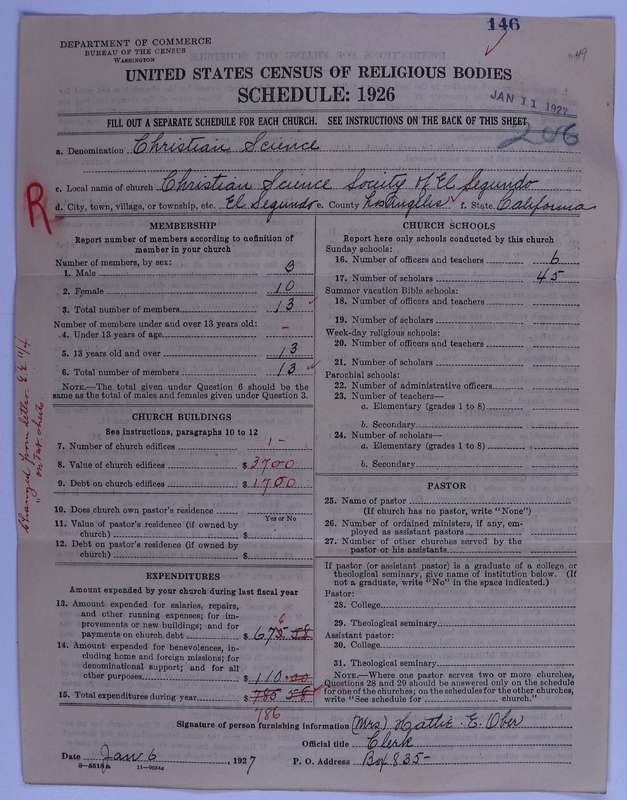 146
DEPARTMENT OF COMMERCE
BUREAU OF THE CENSUS
WASHINGTON
UNITED STATES CENSUS OF RELIGIOUS BODIES
SCHEDULE: 1926
JAN 11 1927
FILL OUT A SEPARATE SCHEDULE FOR EACH CHURCH. SEE INSTRUCTIONS ON THE BACK OF THIS SHEET
206
a. Denomination Christian Science
c. Local name of church Christian Science Society of El Segundo
d. City, town, village, or township, etc. El Segundo e. County Los Angeles f. State California
R
MEMBERSHIP
Report number of members according to definition of
member in your church
Number of members, by sex:
1. Male 3
2. Female 10
3. Total number of members 13
Number of members under and over 13 years old:
4. Under 13 years of age –
5. 13 years old and over 13
6. Total number of members 13
NOTE.—The total given under Question 6 should be the
same as the total of males and females given under Question 3.
CHURCH BUILDINGS
See instructions, paragraphs 10 to 12
7. Number of church edifices 1-
8. Value of church edifices $ 3700
9. Debt on church edifices $ 1700
10. Does church own pastor's residence
Yes or No
11. Value of pastor's residence (if owned by
church) $
12. Debt on pastor's residence (if owned by
church) $
Changed from letter
EXPENDITURES
Amount expended by your church during last fiscal year
13. Amount expended for salaries, repairs,
and other running expenses; for im-
provements or new buildings; and for
payments on church debt $ 675 58
6
14. Amount expended for benevolences, in-
cluding home and foreign missions; for
denominational support; and for all
other purposes $ 110.00
15. Total expenditures during year $ 785 58
786
CHURCH SCHOOLS
Report here only schools conducted by this church
Sunday schools:
16. Number of officers and teachers 6
17. Number of scholars 45
Summer vacation Bible schools:
18. Number of officers and teachers
19. Number of scholars
Week-day religious schools:
20. Number of officers and teachers
21. Number of scholars
Parochial schools:
22. Number of administrative officers
23. Number of teachers—
a. Elementary (grades 1 to 8)
b. Secondary
24. Number of scholars—
a. Elementary (grades 1 to 8)
b. Secondary
PASTOR
25. Name of pastor
(If church has no pastor, write "None")
26. Number of ordained ministers, if any, em-
ployed as assistant pastors
27. Number of other churches served by the
pastor or his assistants
If pastor (or assistant pastor) is a graduate of a college or
theological seminary, give name of institution below. (If
not a graduate, write "No" in the space indicated.)
Pastor:
28. College
29. Theological seminary
Assistant pastor:
30. College
31. Theological seminary
NOTE.—Where one pastor serves two or more churches,
Questions 28 and 29 should be answered only on the schedule
for one of the churches; on the schedules for the other churches,
write "See schedule for church."
Signature of person furnishing information (Mrs) Hattie E. Ober
Official title Clerk
Date Jan 6, 1927 P. O. Address Box 835-
8—5518a 11—9034c